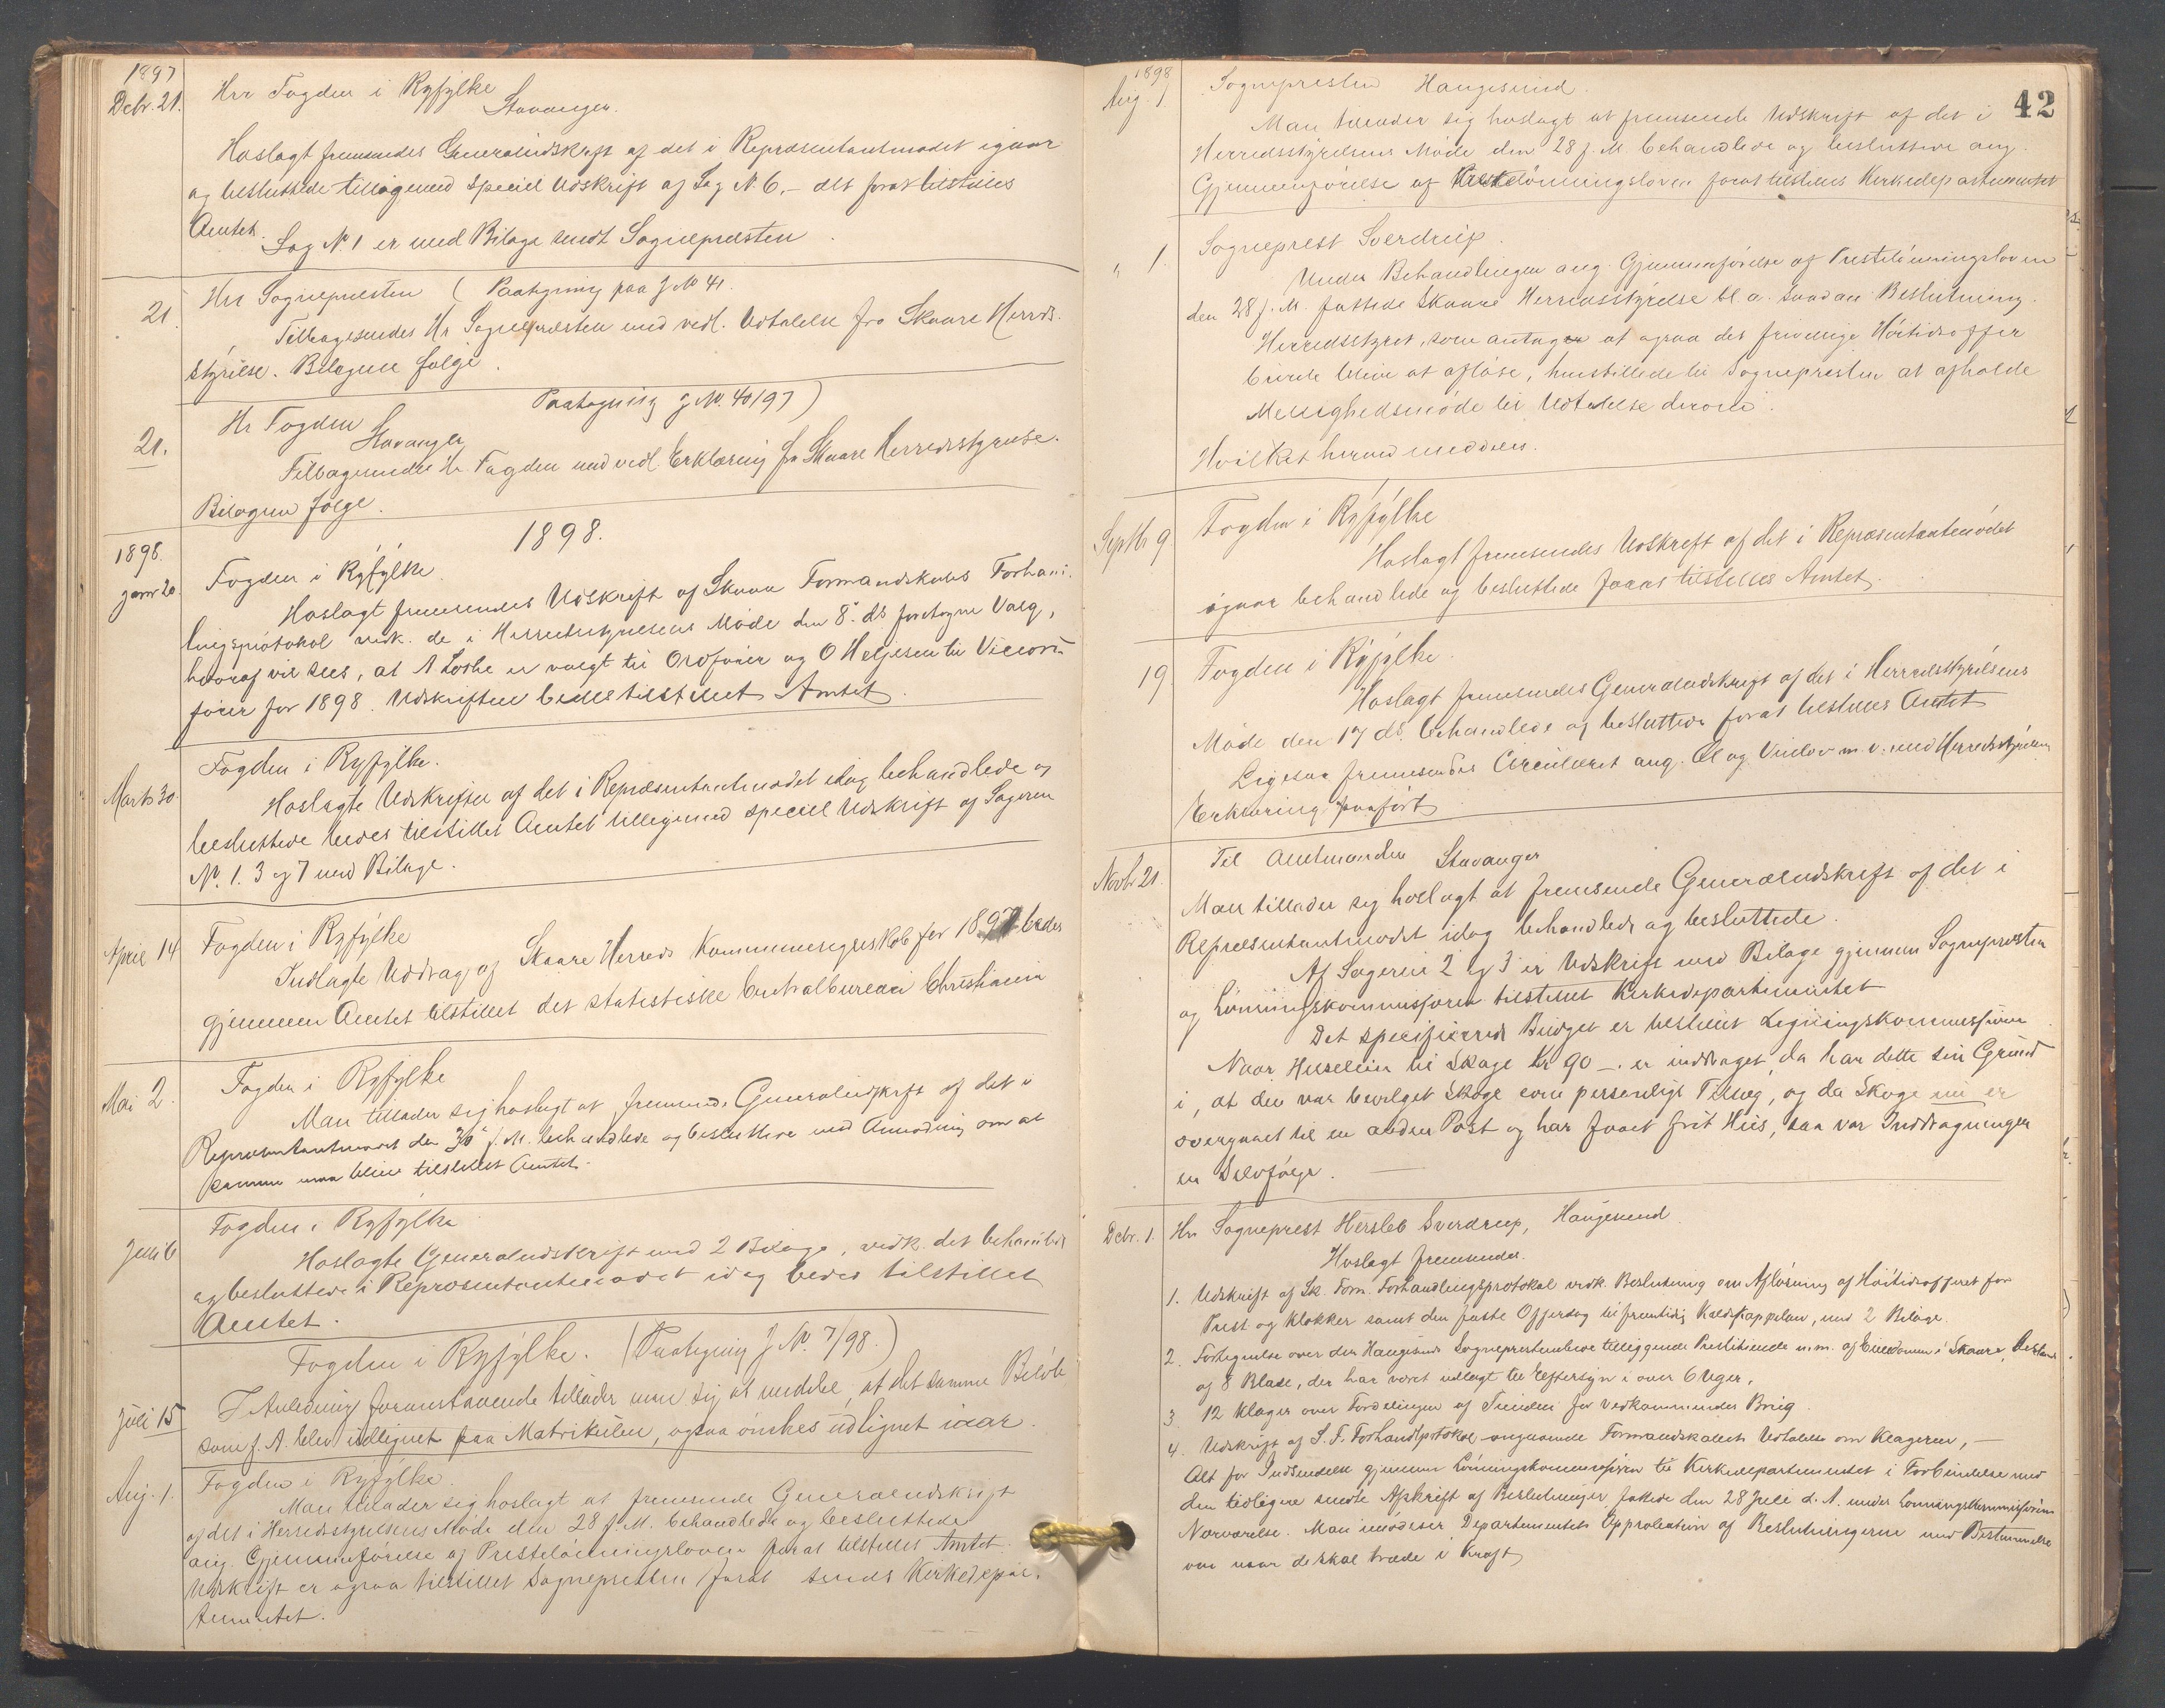 1897
Debr. 21.
Hrr Fogden i Ryfylke
Stavanger.
Hoslagt fremsendes Generaludskrift af det i Repræsentantmødet igaar
og besluttede tilligemed speciel Udskrift af Sag N. 6, – alt forat tilstilles
Amtet.
Sag No 1 er med Bilage sendt Sognepresten.
21.
Hrr Sognepresten ( Paategning paa J No 41.
Tilbagesendes Hr Sognepræsten med vedl. Udtalelse fra Skaare Herreds-
styrelse. Bilagene følge.
21.
Hr Fogden Paategning J No. 40/97)
Stavanger
Tilbagesendes Hr. Fogden med vedl. Erklæring fra Skaare Herredsstyrelse.
Bilagene følge.
1898.
1898.
Janr 20.
Fogden i Ryfylke
Hoslagt fremsendes Udskrift af Skaare Formandskabs Forhand-
lingsprotokol vedk. de i Herredsstyrelsens Møde den 8de ds foretagne Valg,
hvoraf vil sees, at A Lothe er valgt til Ordfører og O Heljesen til Viceord-
fører for 1898. Udskriften bedes tilstillet Amtet.
Marts 30.
Fogden i Ryfylke.
Hoslagte Udskrifter af det i Repræsentantmødet idag behandlede og
besluttede bedes tilstillet Amtet tilligemed speciel Udskrift af Sagerne
No. 1. 3 og 7 med Bilage.
April 14
Fogden i Ryfylke
Indlagte Uddrag af Skaare Herreds Kommuneregnskab for 1897 bedes
gjennem Amtet tilstillet det statistiske Centralbureau Christiania
Mai 2.
Fogden i Ryfylke
Man tillader sig hoslagt at fremsende Generaludskrift af det i
Repræsentantmødet den 30te f. M. behandlede og besluttede med Anmodning om at
samme maa blive tilstillet Amtet.
Juni 6
Fogden i Ryfylke
Hoslagte Generaludskrift med 2 Bilage, vedk. det behandlede
og besluttede i Repræsentantmødet idag bedes tilstillet
Amtet.
Juli 15
Fogden i Ryfylke. (Paategning J No. 7/98.)
I Anledning foranstaaende tillader man sig at meddele, at det samme Beløb
som f. A. blev udlignet paa Matrikulen, ogsaa ønskes udlignet iaar.
Aug. 1.
Fogden i Ryfylke.
Man tillader sig hoslagt at fremsende Generaludskrift
af det i Herredsstyrelsens Møde den 28 f. M. behandlede og besluttede
ang. Gjennemførelse af Presteløningsloven forat tilstilles Amtet.
Udskrift er ogsaa tilstillet Sognepresten forat sendes Kirkedepar-
tementet.
42
1898
Aug. 1
Sognepresten Haugesund.
Man tillader sig hoslagt at fremsende Udskrift af det i
Herredsstyrelsens Møde den 28 f. M. behandlede og besluttede ang.
Gjennemførelse af Presteløningsloven forat tilstilles Kirkedepartementet
" 1.
Sogneprest Sverdrup.
Under Behandlingen ang. Gjennemførelse af Presteløningsloven
den 28 f. M. fattede Skaare Herredsstyrelse bl. a. saadan Beslutning.
Herredsstyret, som antager at ogsaa det frivillige Høitidsoffer
burde blive at afløse, henstillede til Sognepresten at afholde
Menighedsmøde til Udtalelse derom.
Hvilket herved meddeles.
Septbr 9.
Fogden i Ryfylke
Hoslagt fremsendes Udskrift af det i Repræsentantmødet
igaar behandlede og besluttede forat tilstilles Amtet.
19
Fogden i Ryfylke.
Hoslagt fremsendes Generaludskrift af det i Herredsstyrelsens
Møde den 17 ds. behandlede og besluttede forat tilstilles Amtet
Ligesaa fremsendes Circulæret ang. Øl og Vinlov m. v. med Herredsstyrelsens
Erklæring paaført
Novbr 21.
Til Amtmanden Stavanger
Man tillader sig hoslagt at fremsende Generaludskrift af det i
Repræsentantmødet idag behandlede og besluttede.
Af Sagerne 2 og 3 er Udskrift med Bilage gjennem Sognepresten
og Lønningskommissionen tilstillet Kirkedepartementet
Det specificerede Budget er tilstillet Ligningskommissionen
Naar Huseleien til Skage Kr 90 –. er inddraget, da har dette sin Grund
i, at den var bevilget Skage som personligt Tillæg, og da Skage nu er
overgaaet til en anden Post og har faaet frit Hus, saa var Inddragningen
en Selvfølge.
Debr. 1.
Hr. Sogneprest Hersleb Sverdrup, Haugesund
Hoslagt fremsendes.
1. Udskrift af Sk. Form. Forhandlingsprotokol vedk. Beslutning om Afløsning af Høitidsofferet for
Prest og Klokker samt den faste Offerdag til fremtidig Kaldskappelan, med 2 Bilage.
2. Fortegnelse over den Haugesunds Sogneprestembede tilliggende Prestetiende m.m. af Eiendomme i Skaare, bestaaende
af 8 Blade, der har været udlagt til Eftersyn i over 6 Uger,
3. 12 Klager over Fordelingen af Tienden for vedkommendes Brug.
4. Udskrift af S. F. Forhandlprotokol angaaende Formandskabets Udtalelse om Klagerne, –
Alt for Indsendelse gjennem Lønningskommissionen til Kirkedepartementet i Forbindelse med
den tidligere sendte Afskrift af Beslutninger fattede den 28 Juli d. A. under Lønningskommissionens
Nærværelse. Man imødeser Departementets Approbation af Beslutningerne med Bestemmelse
om naar de skal træde i Kraft